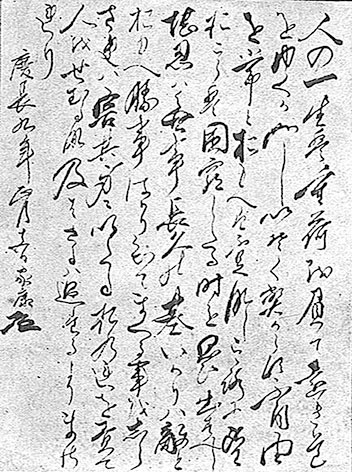 人の一生は重荷を負て遠き道
をゆくかことしいそくへからす不自由
を常とおもへは不足なしこころに望
おこらは困窮したる時を思ひ出すへし
堪忍は無事長久の基いかりは敵と
おもへ勝事はかり知てまくる事をしら
されは害其身にいたるおのれを責て
人をせむるな及はさるは過たるよりまさ
れり
慶長九年正月十五日家康